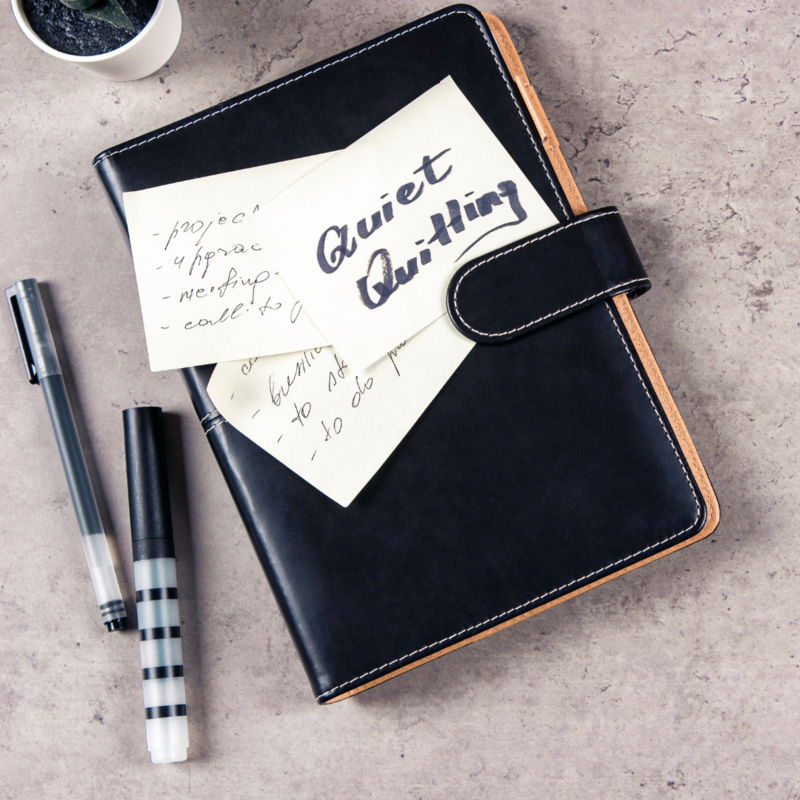 Quiet
Quitting
- projec
- upgrac
- meeting
- call to
- to
- to do